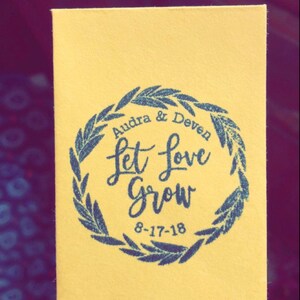 Audra & Deven
Let Love
Grow
8-17-18